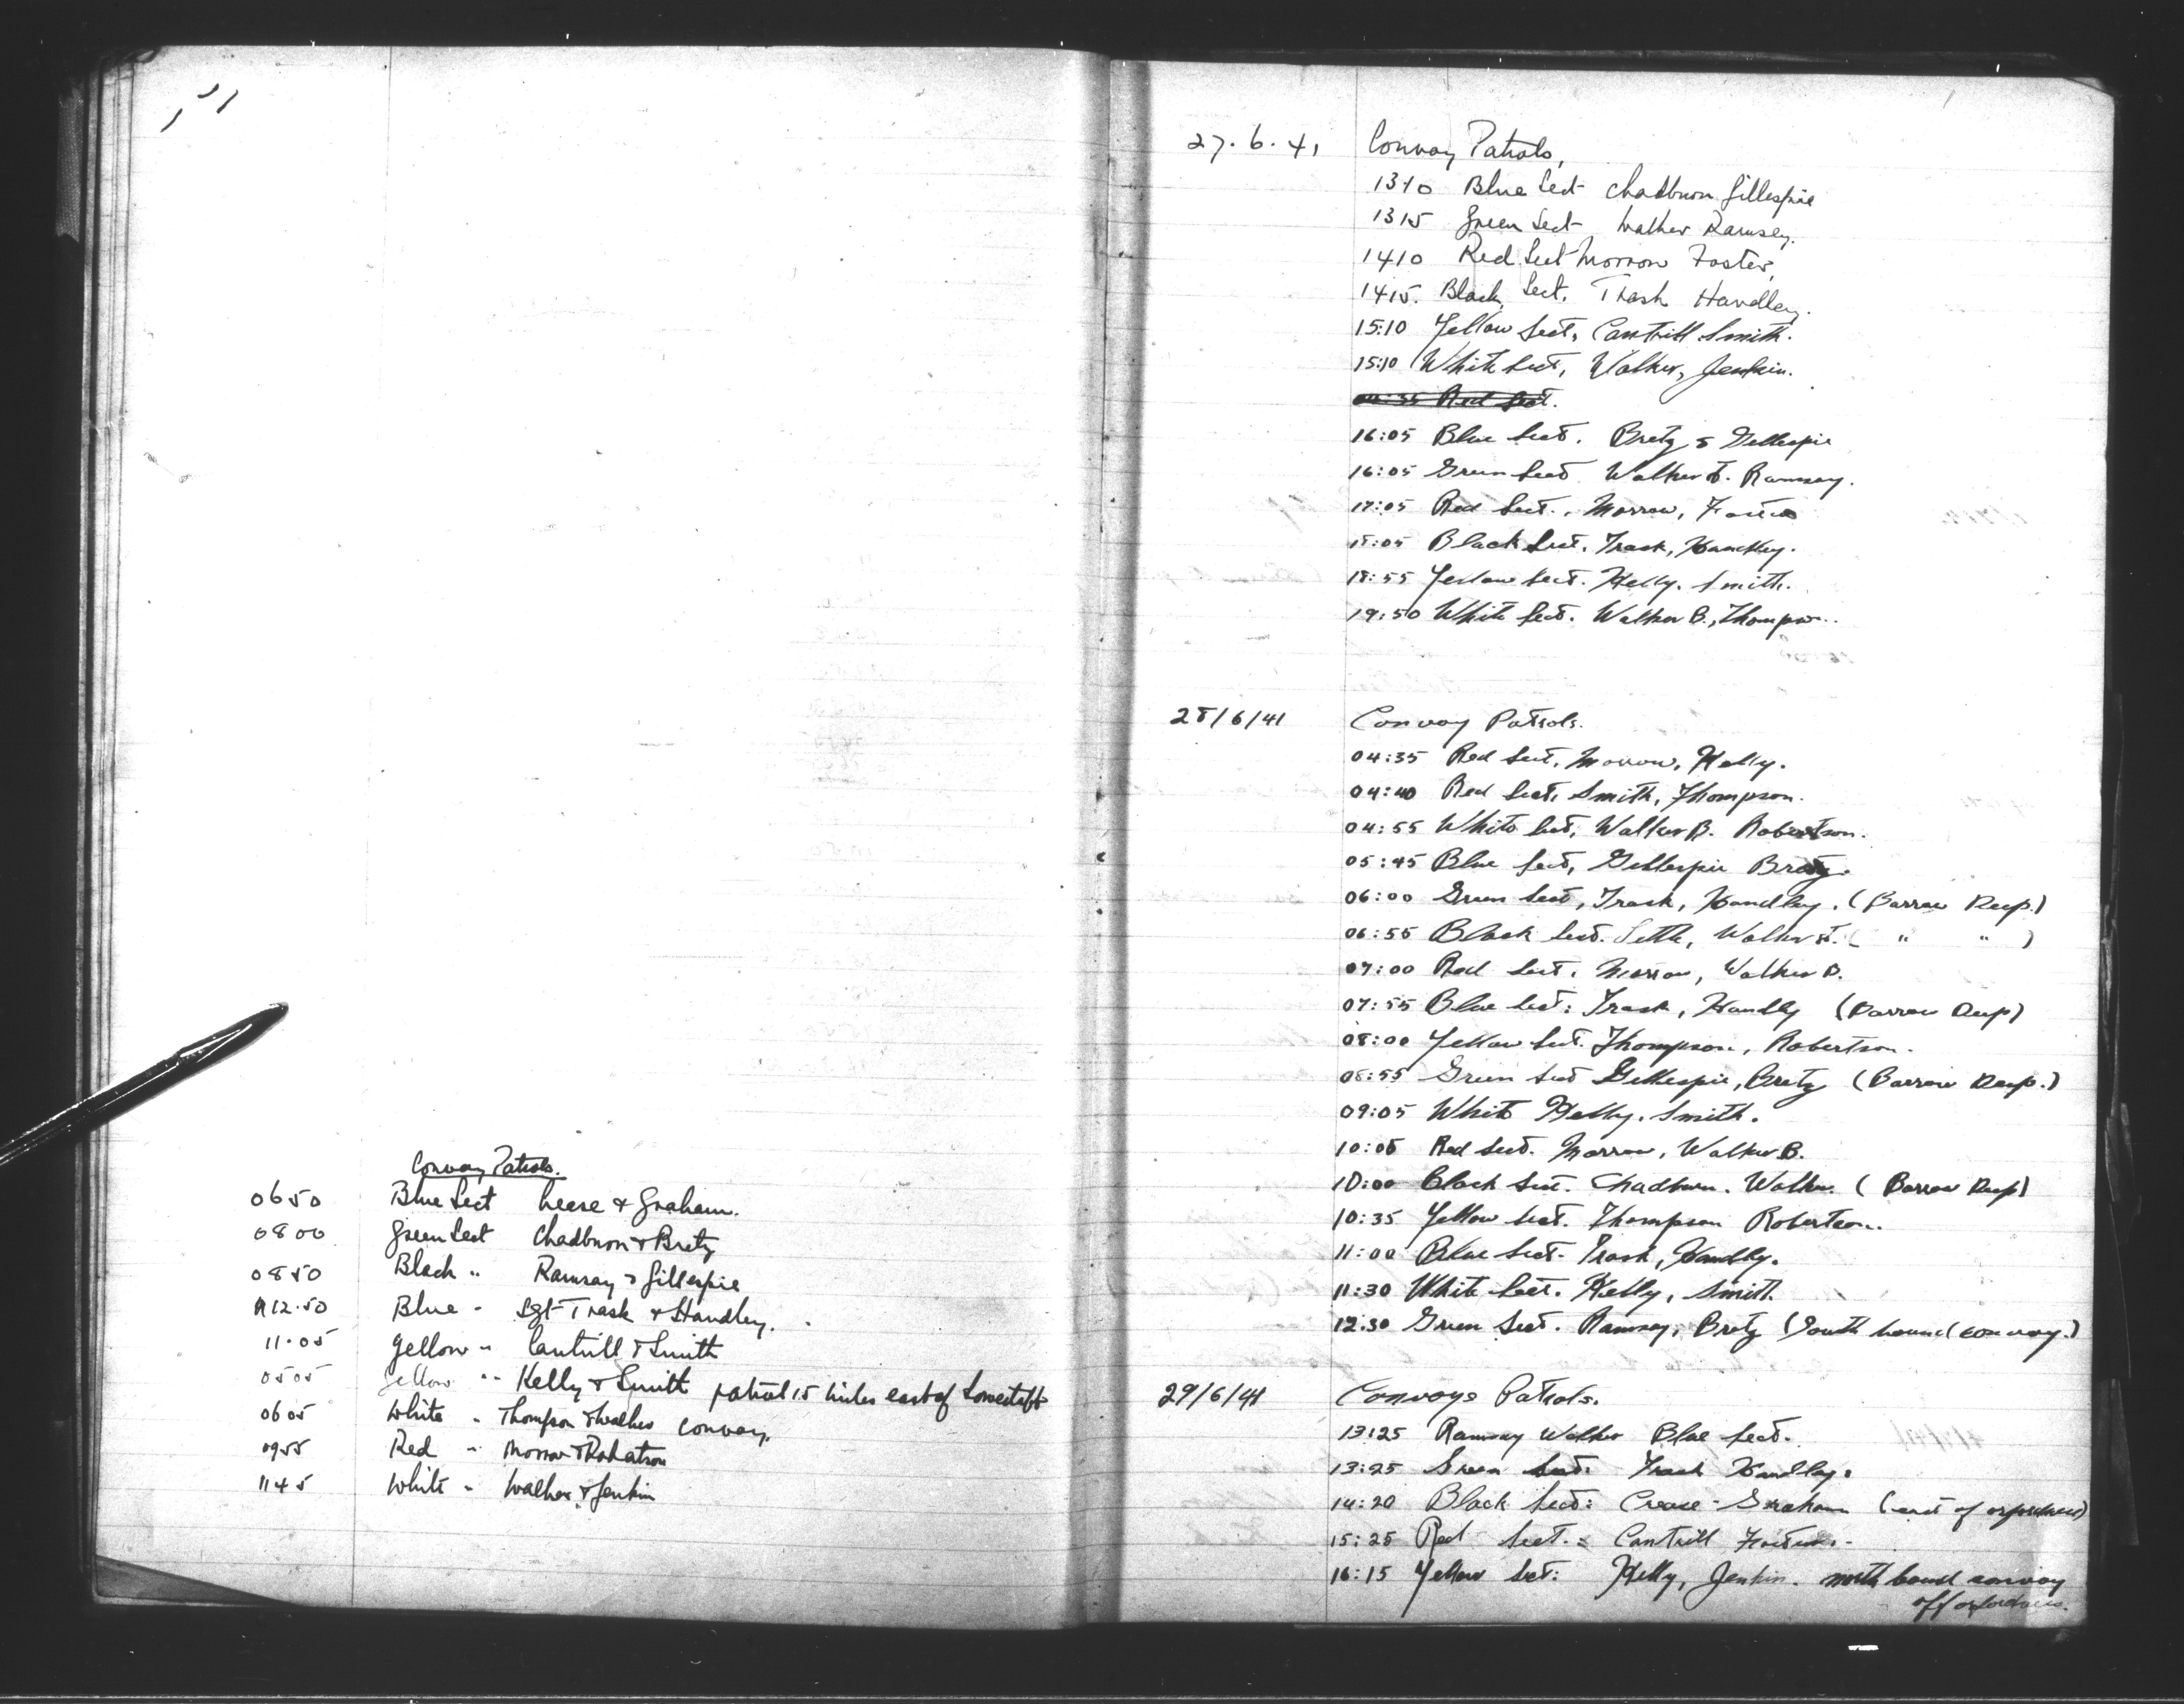 Convoy Patrols.
0650 Blue Sect Leese & Graham.
0800 Green Sect Chadburn & Bretz
0850 Black " Ramsay & Gillespie
12.50 Blue - Sgt Trask & Handley.
11.05 Yellow " Cantrill & Smith
0505 Yellow " Kelly & Smith patrol 15 miles east of Lowestoft
0605 White " Thompson & Walker convoy.
0955 Red " Morrow & Robertson
1145 White " Walker & Jenkin
27.6.41 Convoy Patrols,
1310 Blue Sect Chadburn Gillespie
1315 Green Sect Walker Ramsey.
1410 Red Sect Morrow Foster,
1415. Black Sect. Trask Handley.
15:10 Yellow Sect, Cantrill Smith.
15:10 White Sect, Walker, Jenkin.
04:35 Red Sect.
16:05 Blue Sect. Bretz & Gillespie
16:05 Green Sect Walker Ramsay.
17:05 Red Sect., Morrow, Foster
18:05 Black Sect. Trask, Handley.
18:55 Yellow Sect. Kelly. Smith.
19:50 White Sect. Walker B., Thompson.
28/6/41 Convoy Patrols.
04:35 Red Sect, Morrow, Kelly.
04:40 Red Sect, Smith, Thompson.
04:55 White Sect, Walker B. Robertson.
05:45 Blue Sect, Gillespie Bretz.
06:00 Green Sect, Trask, Handley. (Barrow Deep.)
06:55 Black Sect. Walker ( " " )
07:00 Red Sect. Morrow, Walker B.
07:55 Blue Sect: Trask, Handly (Barrow Deep)
08:00 Yellow Sect. Thompson, Robertson.
08:55 Green Sect Gillespie, Bretz (Barrow Deep.)
09:05 White Kelly. Smith.
10:05 Red Sect. Morrow, Walker B.
10:00 Black Sect. Chadburn. Walker. (Barrow Deep)
10:35 Yellow Sect. Thompson Robertson.
11:00 Blue Sect. Trask, Handly.
11:30 White Sect. Kelly, Smith.
12:30 Green Sect. Ramsey, Bretz (South bound convoy.)
29/6/41 Convoys Patrols.
13:25 Ramsay Walker Blue Sect.
13:25 Green Sect: Trask Handley.
14:20 Black Sect: Crease - Graham (east of orfordness)
15:25 Red Sect. Cantrill Foster.
16:15 Yellow Sect: Kelly, Jenkin. north bound convoy
off orfordness.